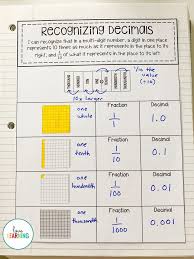 Recognizing Decimals
I can recognize that in a multi-digit number, a digit in one place
represents 10 times as much as it represents in the place to its
right, and 1/10 of what it represents in the place to its left
1/10 the
value
(÷10)
10x larger
Fraction
Decimal
one
whole
1/1
1.0
one
tenth
Fraction
1/10
Decimal
0.1
one
hundredth
Fraction
1/100
Decimal
0.01
one
thousandth
Fraction
1/1000
Decimal
0.001
Love
LEARNING